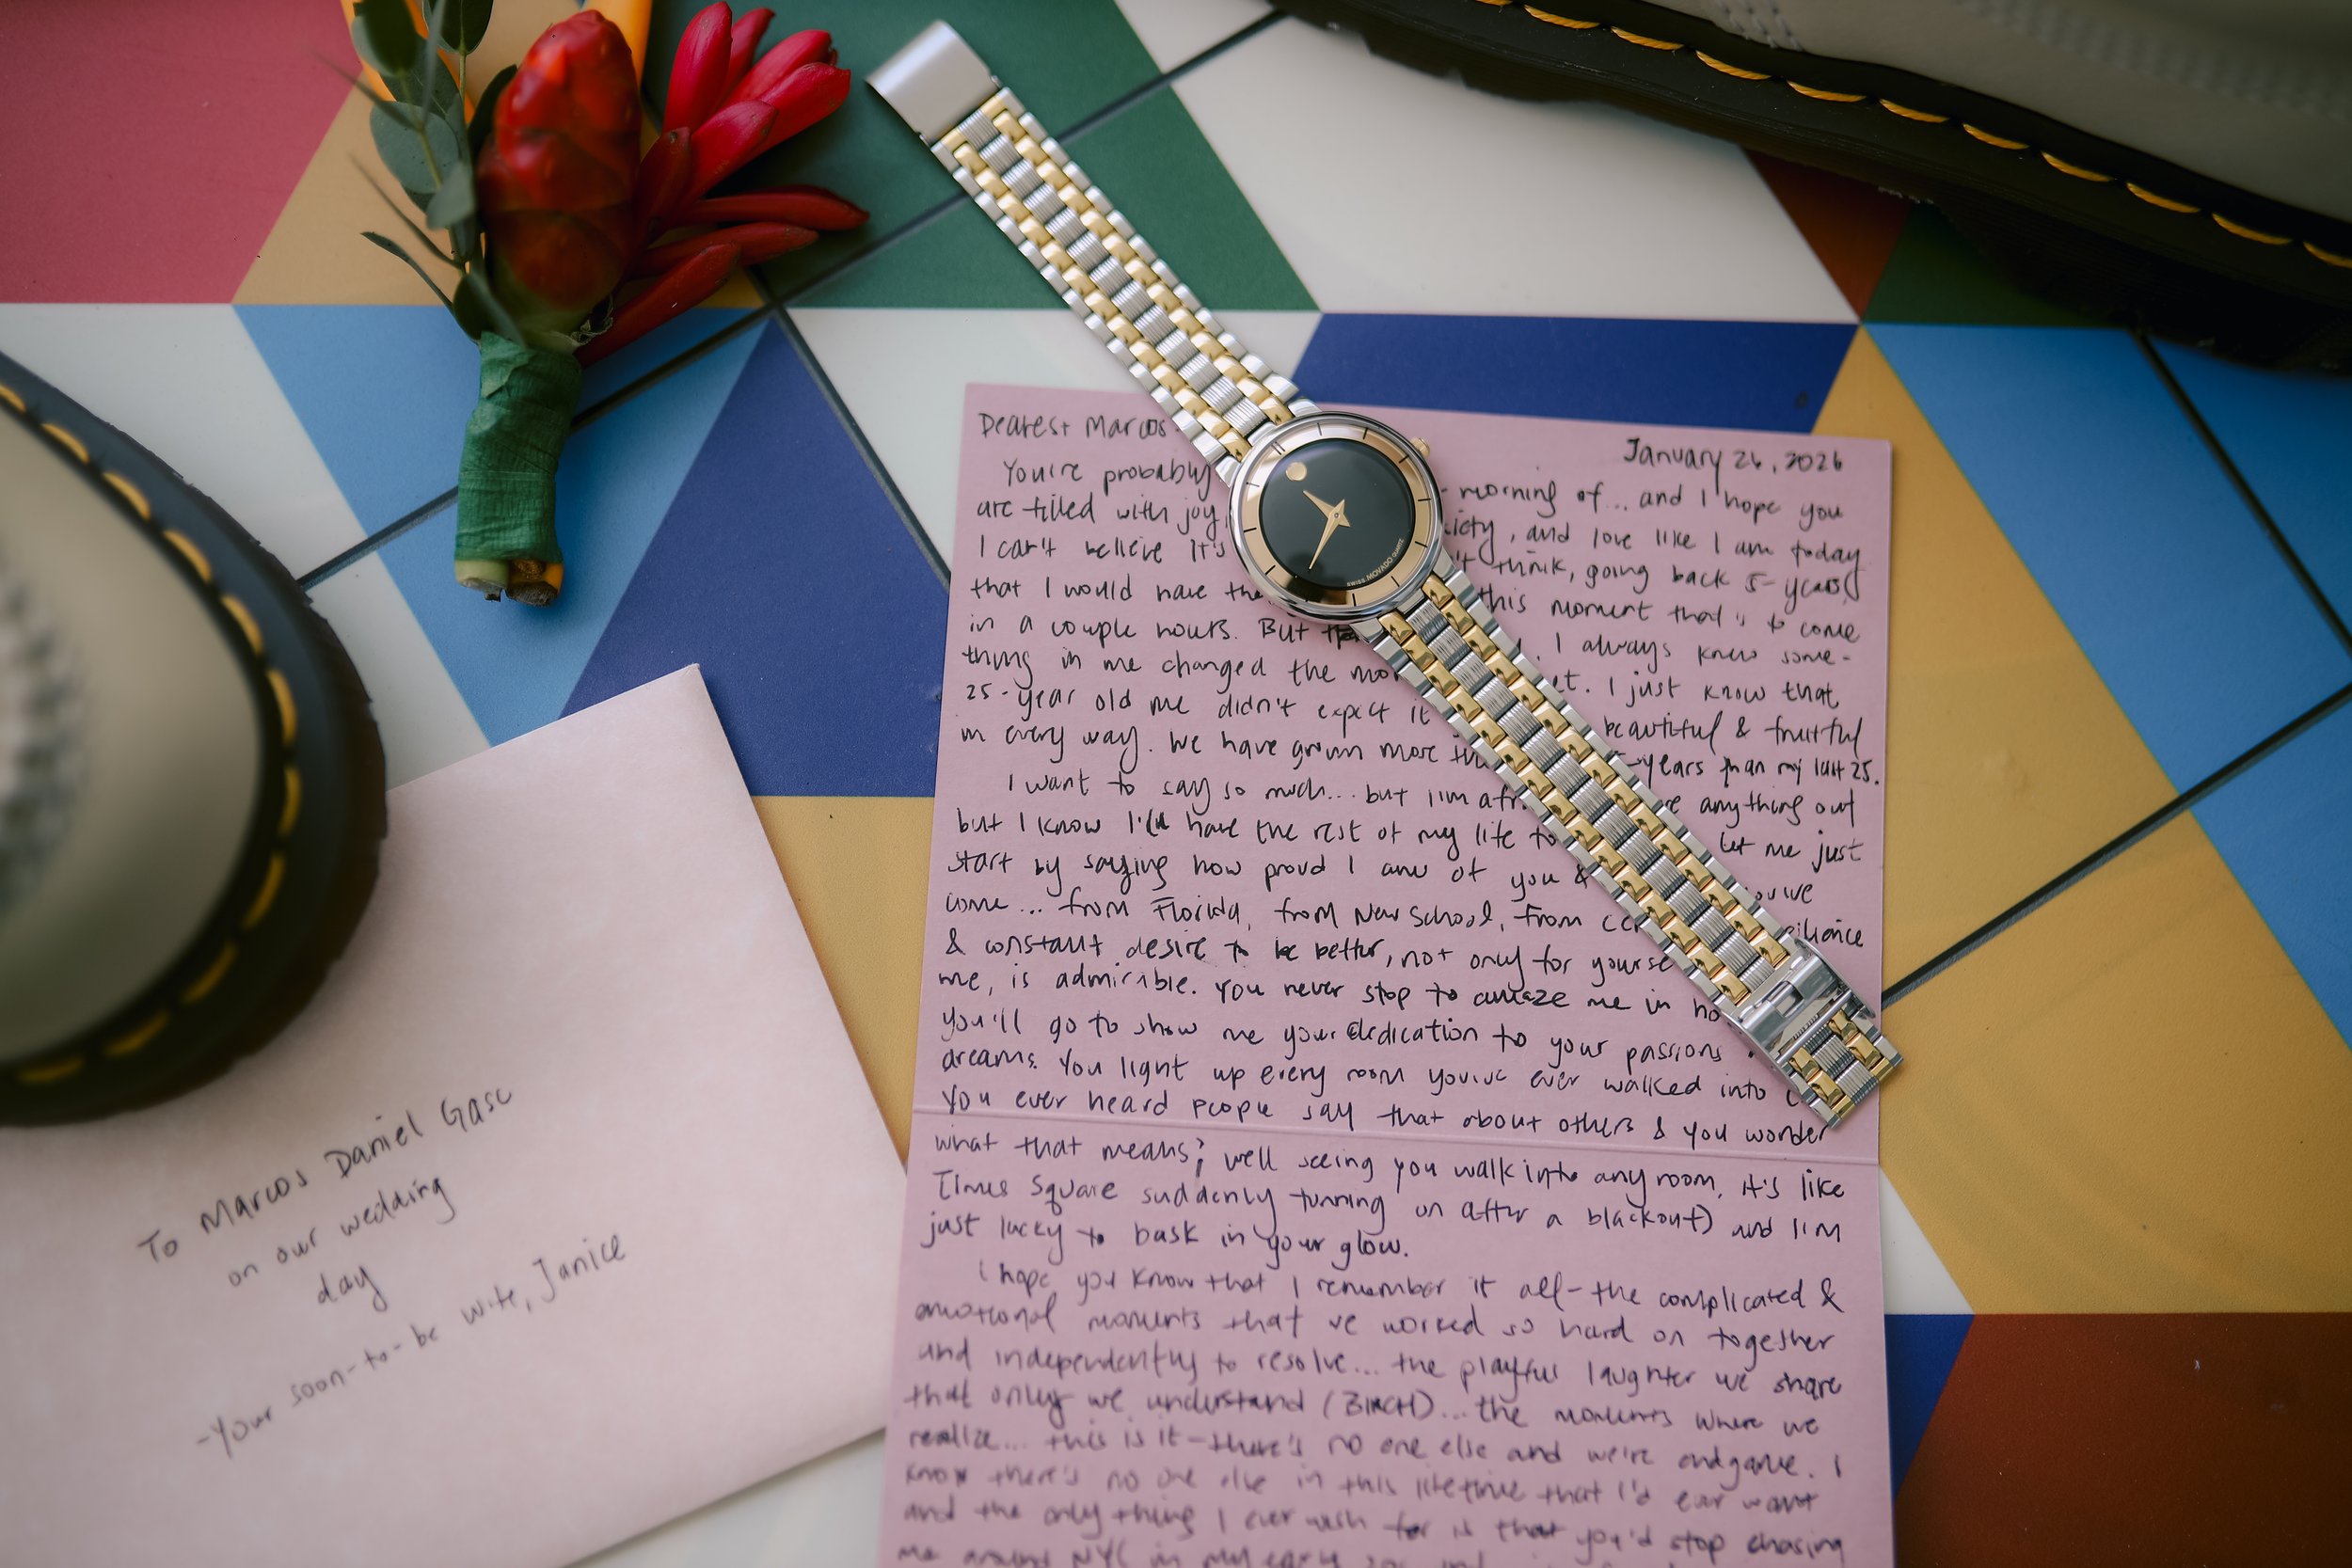 Dearest Marcos
January 26, 2026
You're probably morning of... and I hope you
are filled with joy, and love like I am today
I can't believe it's think, going back 5-years
that I would have this moment that's to come
in a couple hours. But I always knew some-
thing in me changed the I just know that
25-year old me didn't expect it beautiful & fruitful
in every way. We have grown more years than my last 25.
I want to say so much... but I'm anything out
but I know I'll have the rest of my life to let me just
start by saying how proud I am of you & you've
come... from Florida, from New School, from
& constant desire to be better, not only for
me, is admirable. You never stop to amaze me in
you'll go to show me your dedication to your passions
dreams. You light up every room you've ever walked into
You ever heard people say that about others & you wonder
what that means; well seeing you walk into any room, it's like
Times Square suddenly turning on after a blackout) and I'm
just lucky to bask in your glow.
I hope you know that I remember it all - the complicated &
emotional moments that we worked so hard on together
and independently to resolve... the playful laughter we share
that only we understand (BIRCH)... the moments where we
realize... this is it - there's no one else and we're endgame. I
know there's no one else in this lifetime that I'd ever want
and the only thing I ever wish for is that you'd stop chasing
me around NYC in my early
SWISS MOVADO QUARTZ
To Marcos Daniel Gasc
on our wedding
day
-Your soon-to-be wife, Janice